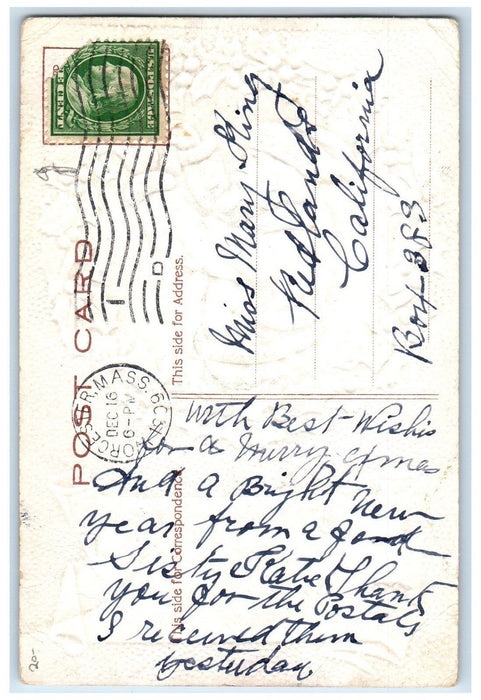 POST CARD
This side for Address.
This side for Correspondence
WORCESTER, MASS.
DEC 16
6-PM
1 D
Miss Mary King
Redlands
California
Box 383
With Best Wishis
for a Merry Xmas
And a Bright New
Year from a fond
Sisty Katie Thank
you for the Postals
I received them
yesterday
20-